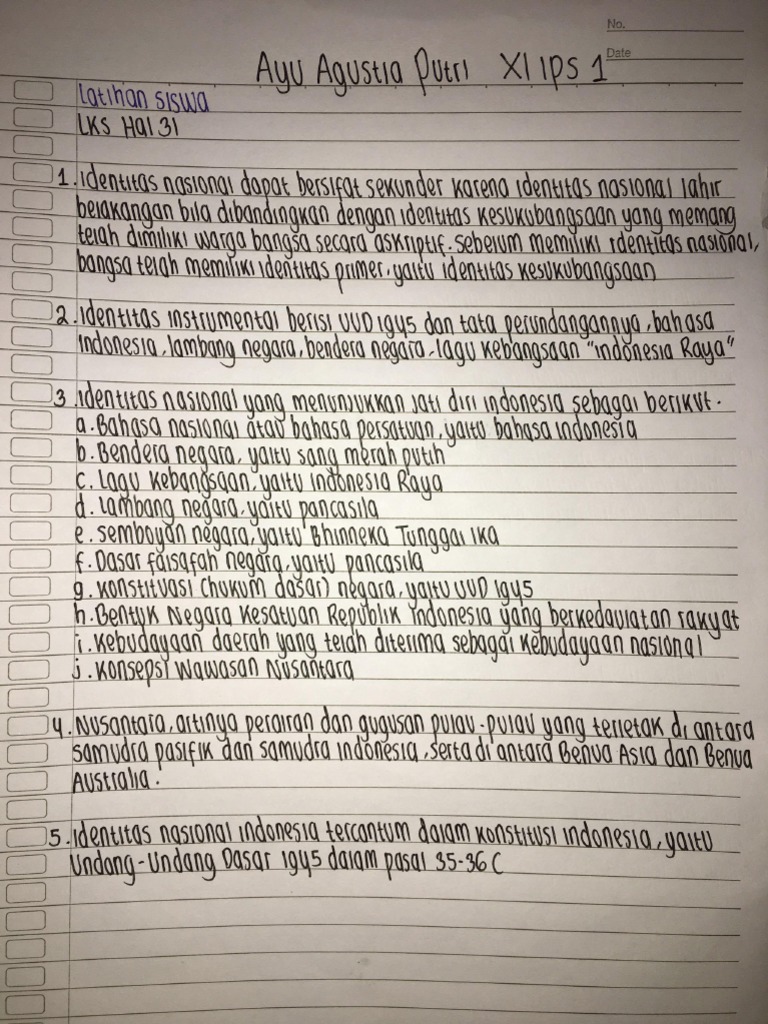 No.
Date
Ayu Agustia Putri XI IPS 1
Latihan siswa
LKS Hal 31
1. Identitas nasional dapat bersifat sekunder karena identitas nasional lahir
belakangan bila dibandingkan dengan identitas kesukubangsaan yang memang
telah dimiliki warga bangsa secara askriptif. Sebelum memiliki identitas nasional,
bangsa telah memiliki identitas primer, yaitu identitas kesukubangsaan
2. Identitas instrumental berisi UUD 1945 dan tata perundangannya, bahasa
Indonesia, lambang negara, bendera negara, lagu kebangsaan "Indonesia Raya"
3. Identitas nasional yang menunjukkan jati diri indonesia sebagai berikut.
a. Bahasa nasional atau bahasa persatuan, yaitu bahasa indonesia
b. Bendera negara, yaitu sang merah putih
c. Lagu kebangsaan, yaitu Indonesia Raya
d. Lambang negara, yaitu pancasila
e. Semboyan negara, yaitu Bhinneka Tunggal Ika
f. Dasar falsafah negara, yaitu pancasila
g. Konstituasi (hukum dasar) negara, yaitu UUD 1945
h. Bentuk Negara Kesatuan Republik Indonesia yang berkedaulatan rakyat
i. Kebudayaan daerah yang telah diterima sebagai kebudayaan nasional
j. Konsepsi Wawasan Nusantara
4. Nusantara, artinya perairan dan gugusan pulau-pulau yang terletak di antara
samudra pasifik dan samudra indonesia, serta di antara Benua Asia dan Benua
Australia.
5. Identitas nasional indonesia tercantum dalam konstitusi indonesia, yaitu
Undang-Undang Dasar 1945 dalam pasal 35-36 C